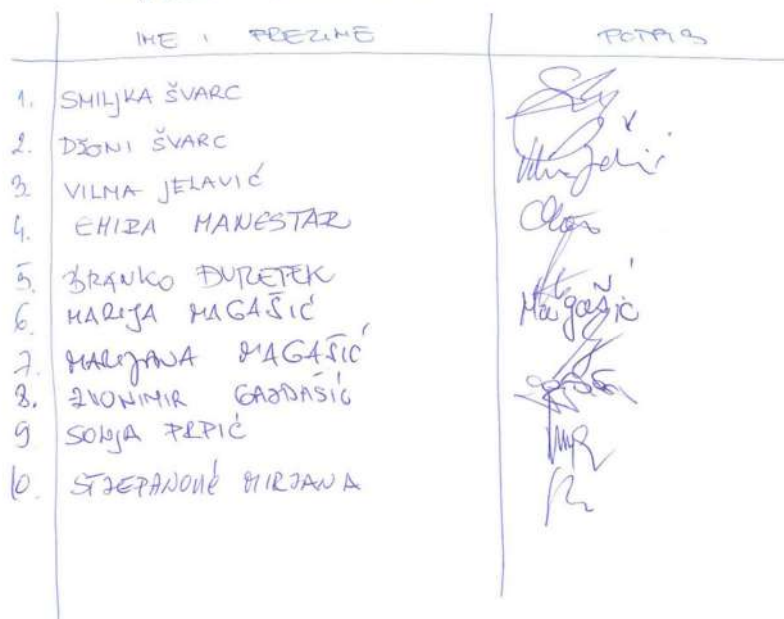 IME I PREZIME POTPIS
1. SMILJKA ŠVARC
2. DŽONI ŠVARC
3. VILMA JELAVIĆ
4. EMIRA MANESTAR
5. BRANKO ĐURETEK
6. MARIJA MAGAŠIĆ Magašić
7. MARIJANA MAGAŠIĆ
8. ZVONIMIR GAJDAŠIĆ
9 SONJA PRPIĆ
10. STJEPANOVIĆ MIRJANA